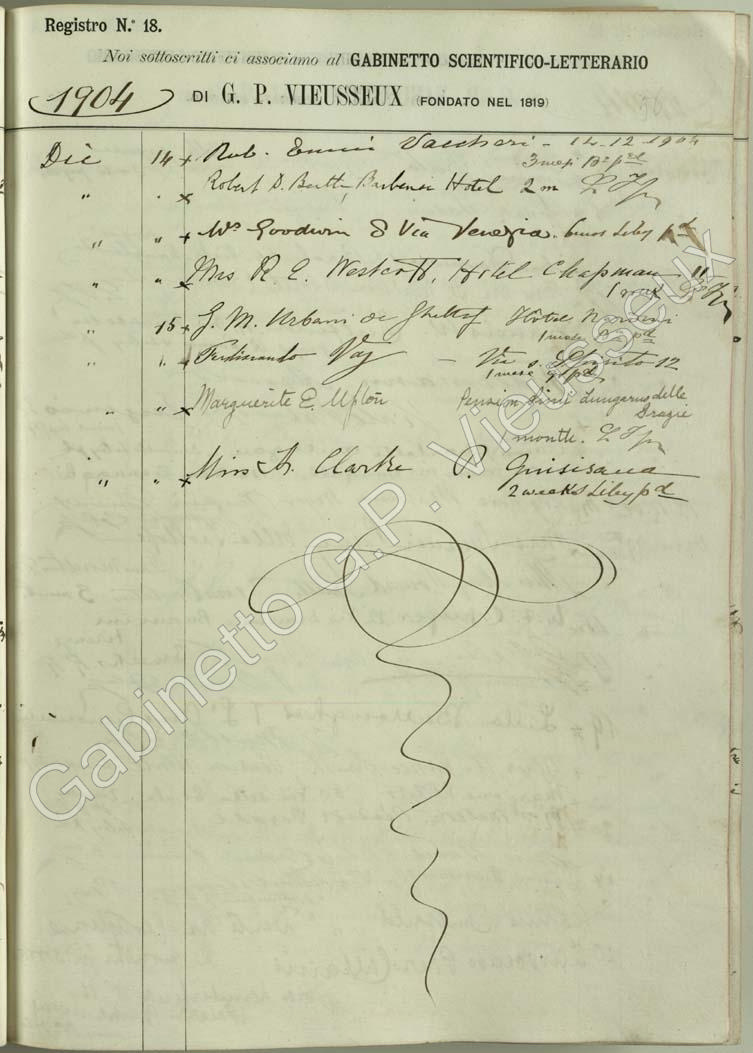 Registro N.º 18.
Noi sottoscritti ci associamo al GABINETTO SCIENTIFICO-LETTERARIO
1904 DI G. P. VIEUSSEUX (FONDATO NEL 1819)
Dic 14 x Rob. - 14-12-1904
3 mesi pd
" " x Robert D. Hotel 2 m
" " x Mrs Goodwin 8 Via Venezia. 6 mos Liby pd
" " x Mrs R. E. Westcott, Hotel Chapman
1 mese
" 15 x G. M. Urbani de Gheltof Hotel
1 mese pd
" " x Ferdinando - Via S. Spirito 12
1 mese pd
" " x Marguerite E. Upton Pension Lungarno delle
Grazie
1 month.
" " x Miss A. Clarke P. Quisisana
2 weeks Liby pd
Gabinetto G.P. Vieusseux